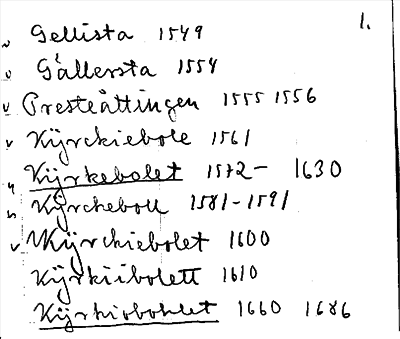 1.
v Gellista 1549
v Gällersta 1554
v Presteåttingen 1555 1556
v Kÿrckiebole 1561
Kÿrkebolet 1572- 1630
Kÿrckeboll 1581-1591
v Kÿrckiebolet 1600
Kÿrkiibolett 1610
Kÿrkiobohlet 1660 1686